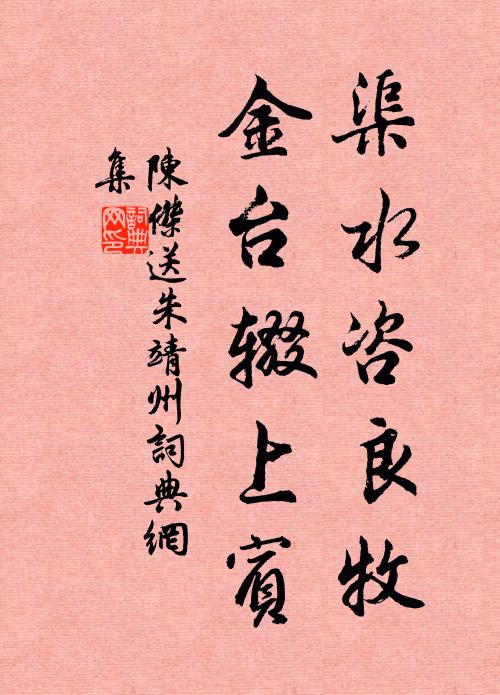 渠水咨良牧
金台辍上賓
陳傑送朱靖州詞典網
集
詞典网印